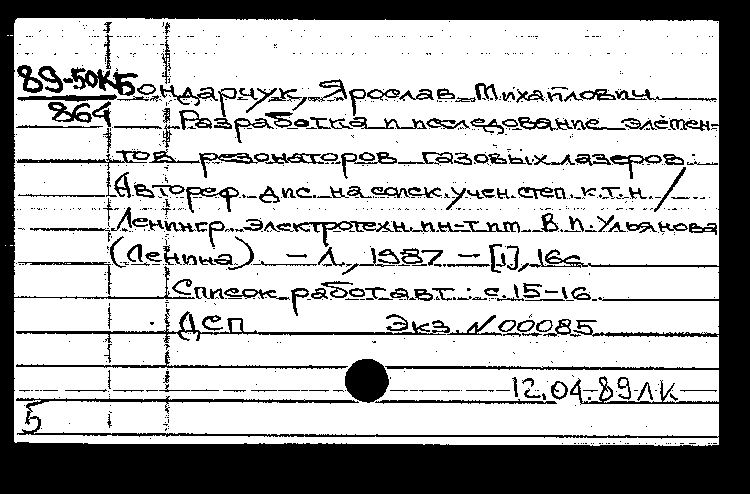 89-50К Бондарчук, Ярослав Михайлович
864 Разработка и исследование элемен-
тов резонаторов газовых лазеров:
Автореф. дис. на соиск. учен. степ. к.т.н. /
Ленингр. электротехн. ин-т им. В.И. Ульянова
(Ленина). - Л., 1987 - [1], 16с.
Список работ авт.: с. 15-16.
ДСП Экз. N 00085
12.04.89 ЛК
5